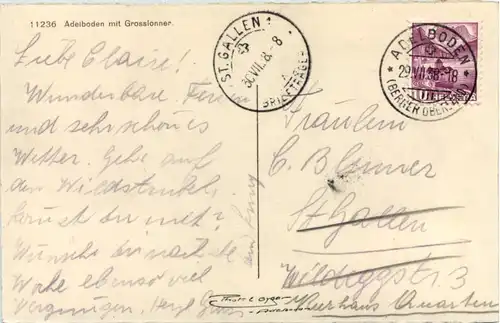 11236 Adelboden mit Grosslohner.
Liebe Claire!
Wunderbare Ferien
und sehr schönes
Wetter. Gehe auf
den Wildstrubel
kommst du mit?
Wünsche dir nächste
Woche ebenso viel
Vergnügen. Herzl. Gruss
ST. GALLEN 1
30.VII.38-8
BRIEFTRÄGER
ADELBODEN
29.VII.38-18
(BERNER OBERLAND)
Fräulein
C. Blumer
St. Gallen
Wildeggstr. 3
Kurhaus Quarten